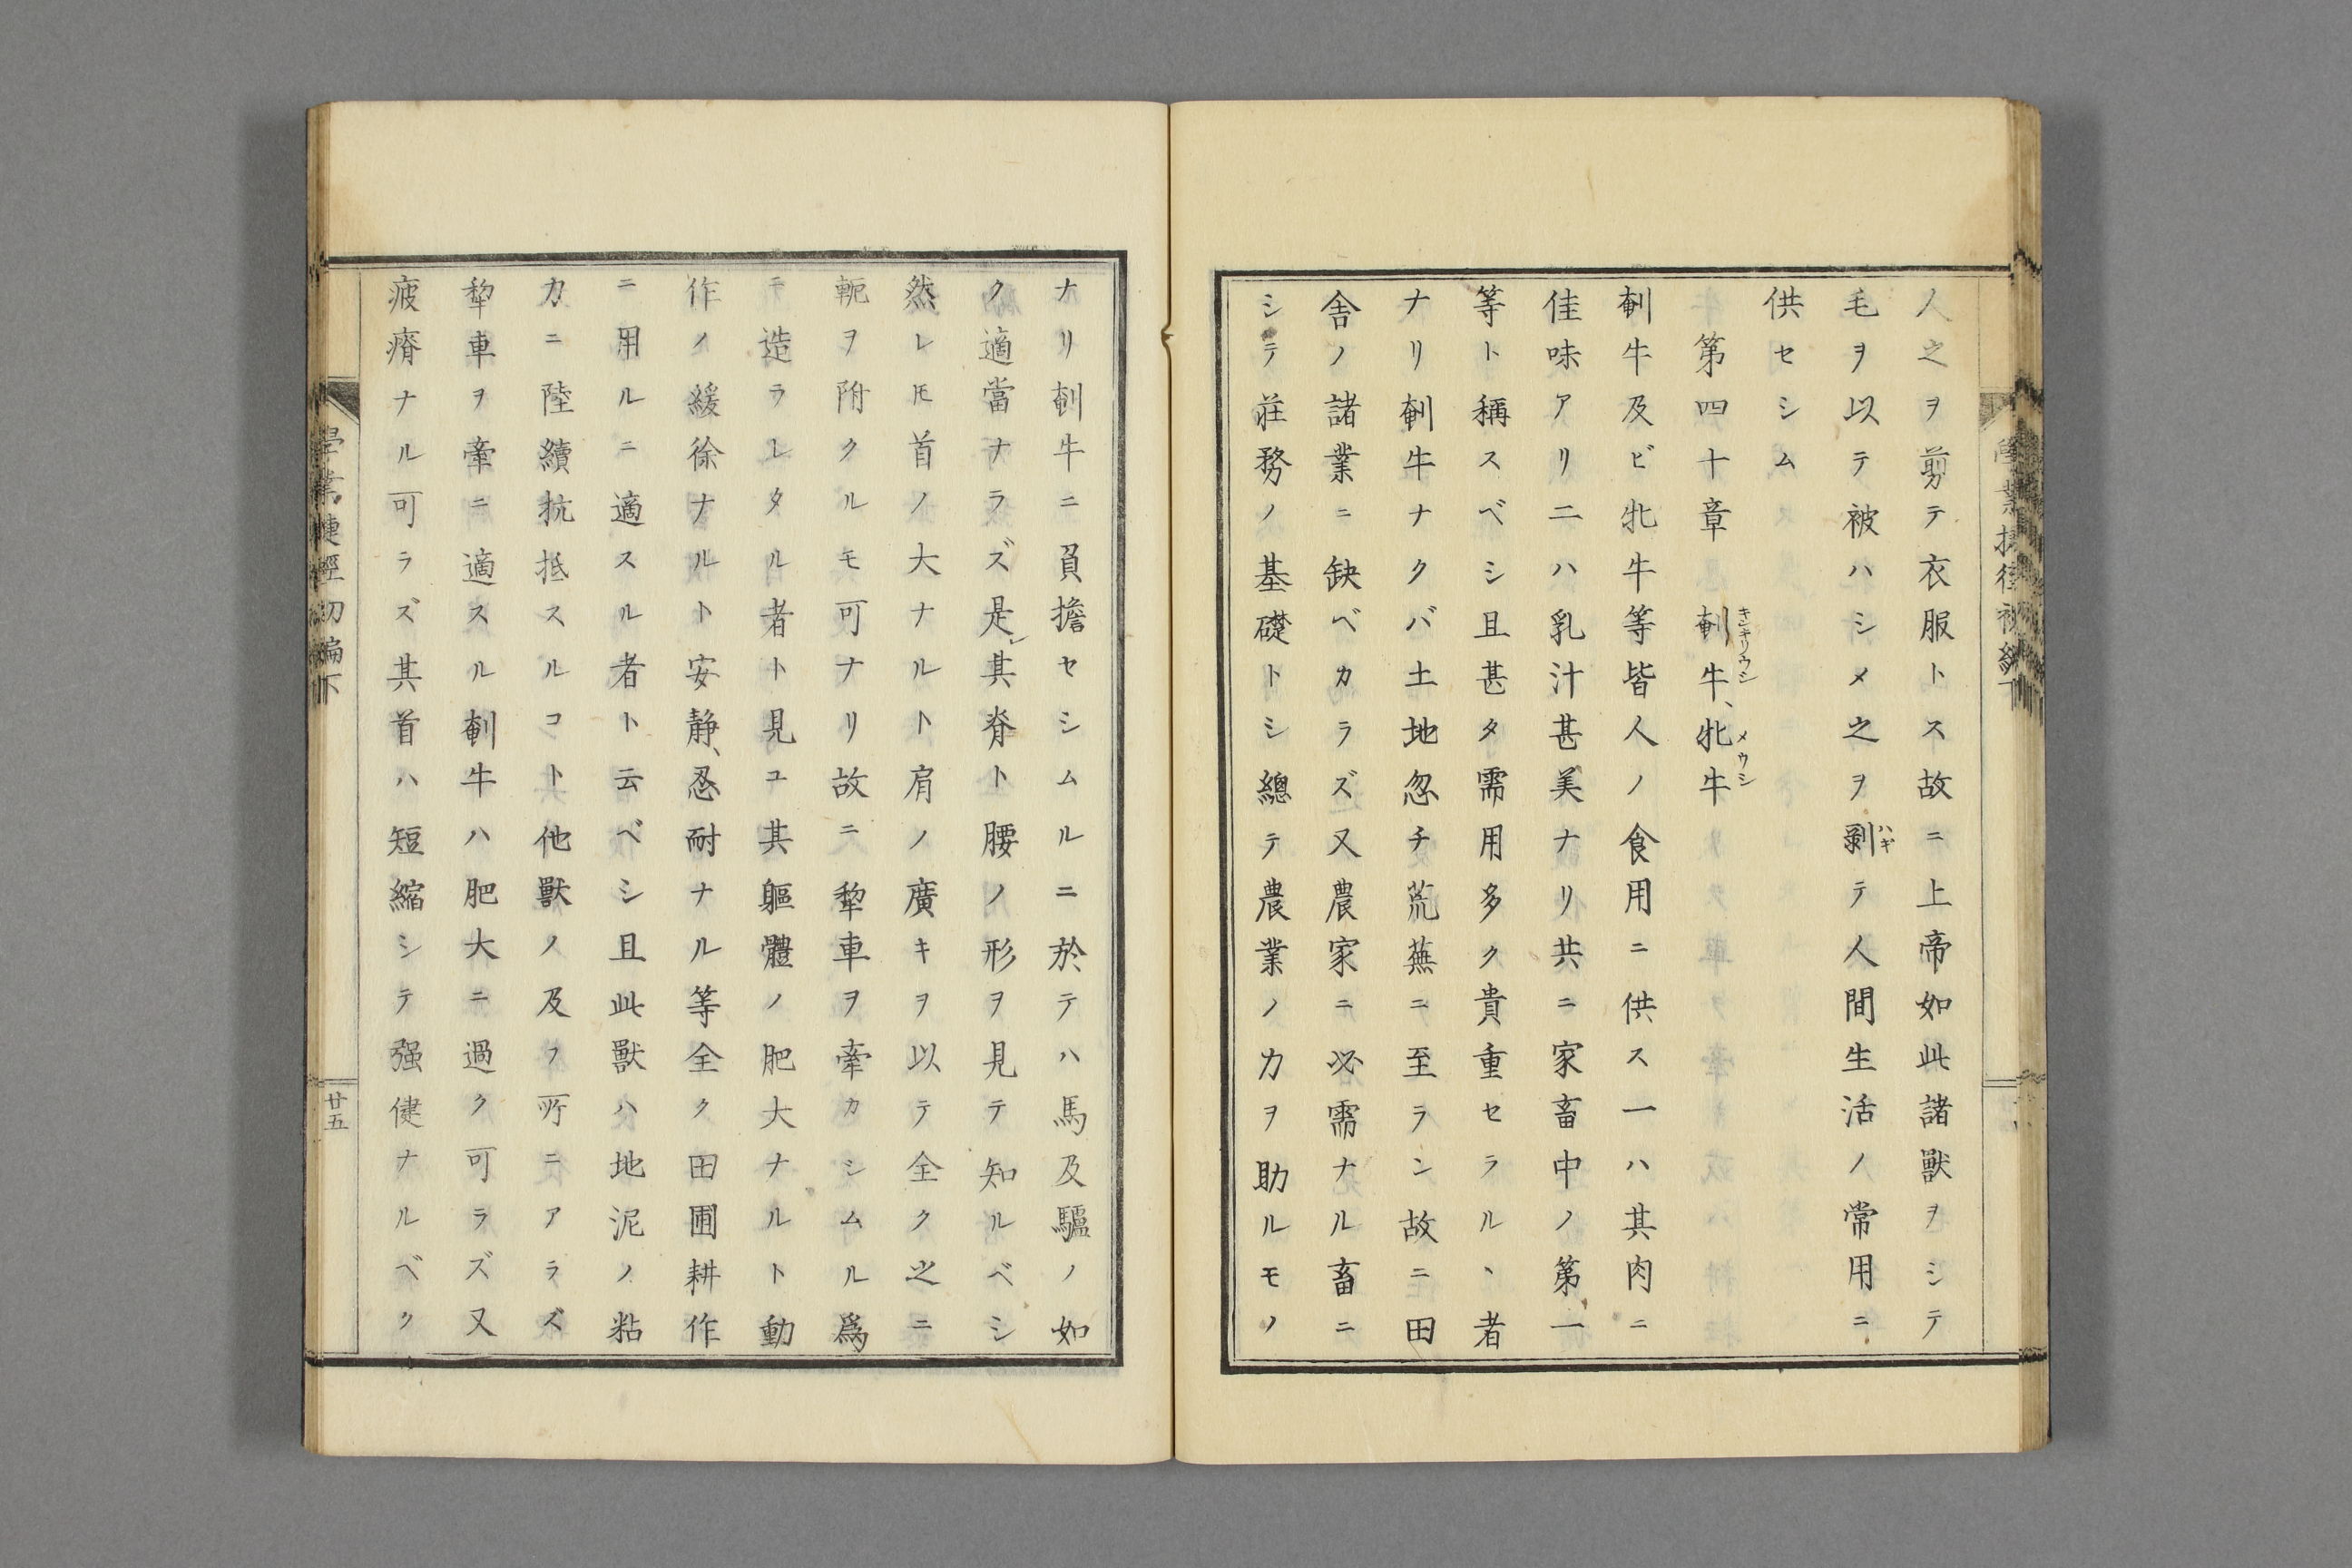 人之ヲ剪テ衣服トス故ニ上帝如此諸獸ヲシテ
毛ヲ以テ被ハシメ之ヲ剥テ人間生活ノ常用ニ
ハギ
供セシム
第四十章 剞牛、牝牛
キンキリウシ メウシ
剞牛及ビ牝牛等皆人ノ食用ニ供ス一ハ其肉ニ
佳味アリ二ハ乳汁甚美ナリ共ニ家畜中ノ第一
等ト稱スベシ且甚タ需用多ク貴重セラルヽ者
ナリ剞牛ナクバ土地忽チ荒蕪ニ至ラン故ニ田
舎ノ諸業ニ缺ベカラズ又農家ニ必需ナル畜ニ
シテ莊務ノ基礎トシ總テ農業ノ力ヲ助ルモノ
ナリ剞牛ニ負擔セシムルニ於テハ馬及驢ノ如
ク適當ナラズ是レ其脊ト腰ノ形ヲ見テ知ルベシ
然レ𪜈首ノ大ナルト肩ノ廣キヲ以テ全ク之ニ
軛ヲ附クルモ可ナリ故ニ犂車ヲ牽カシムル爲
ニ造ラレタル者ト見ユ其軀體ノ肥大ナルト動
作ノ緩徐ナルト安静、忍耐ナル等全ク田圃耕作
ニ用ルニ適スル者ト云ベシ且此獸ハ地泥ノ粘
力ニ陸續抗抵スルコト他獸ノ及フ所ニアラズ
犂車ヲ牽ニ適スル剞牛ハ肥大ニ過ク可ラズ又
疲瘠ナル可ラズ其首ハ短縮シテ强健ナルベク
學業捷徑初編下
廿五